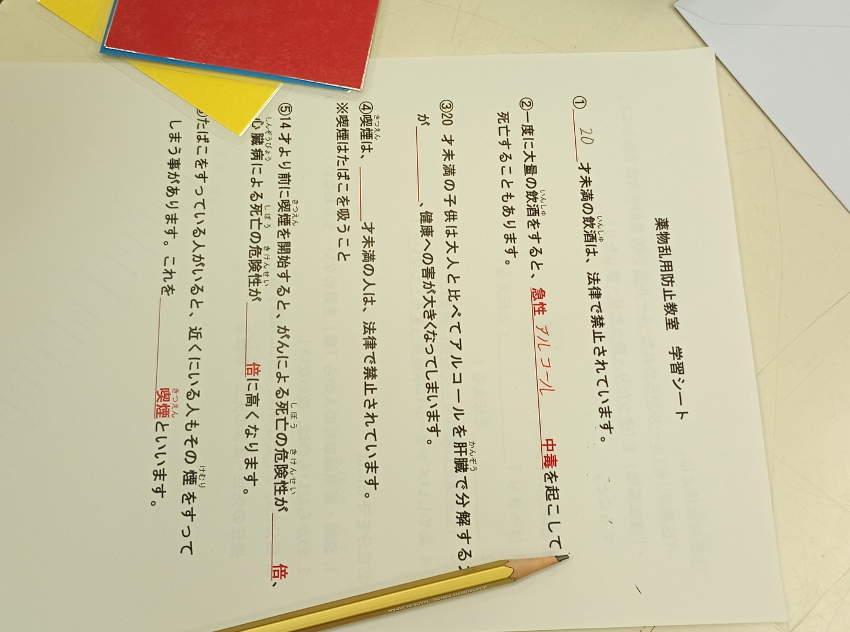 薬物乱用防止教室 学習シート
①20才未満の飲酒は、法律で禁止されています。
②一度に大量の飲酒をすると、急性アルコール中毒を起こして
死亡することもあります。
③20才未満の子供は大人と比べてアルコールを肝臓で分解する
が 、健康への害が大きくなってしまいます。
④喫煙は、 才未満の人は、法律で禁止されています。
※喫煙はたばこを吸うこと
⑤14才より前に喫煙を開始すると、がんによる死亡の危険性が 倍、
心臓病による死亡の危険性が 倍に高くなります。
たばこをすっている人がいると、近くにいる人もその煙をすって
しまう事があります。これを 喫煙といいます。